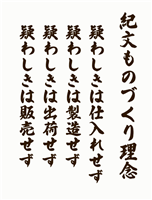 紀文ものづくり理念
疑わしきは仕入れせず
疑わしきは製造せず
疑わしきは出荷せず
疑わしきは販売せず